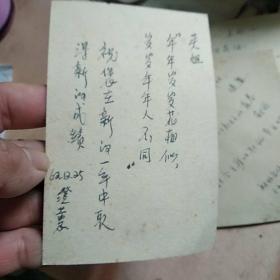 英姐
"年年岁岁花相似,
岁岁年年人不同"
祝您在新的一年中取
得新的成绩
62.12.25